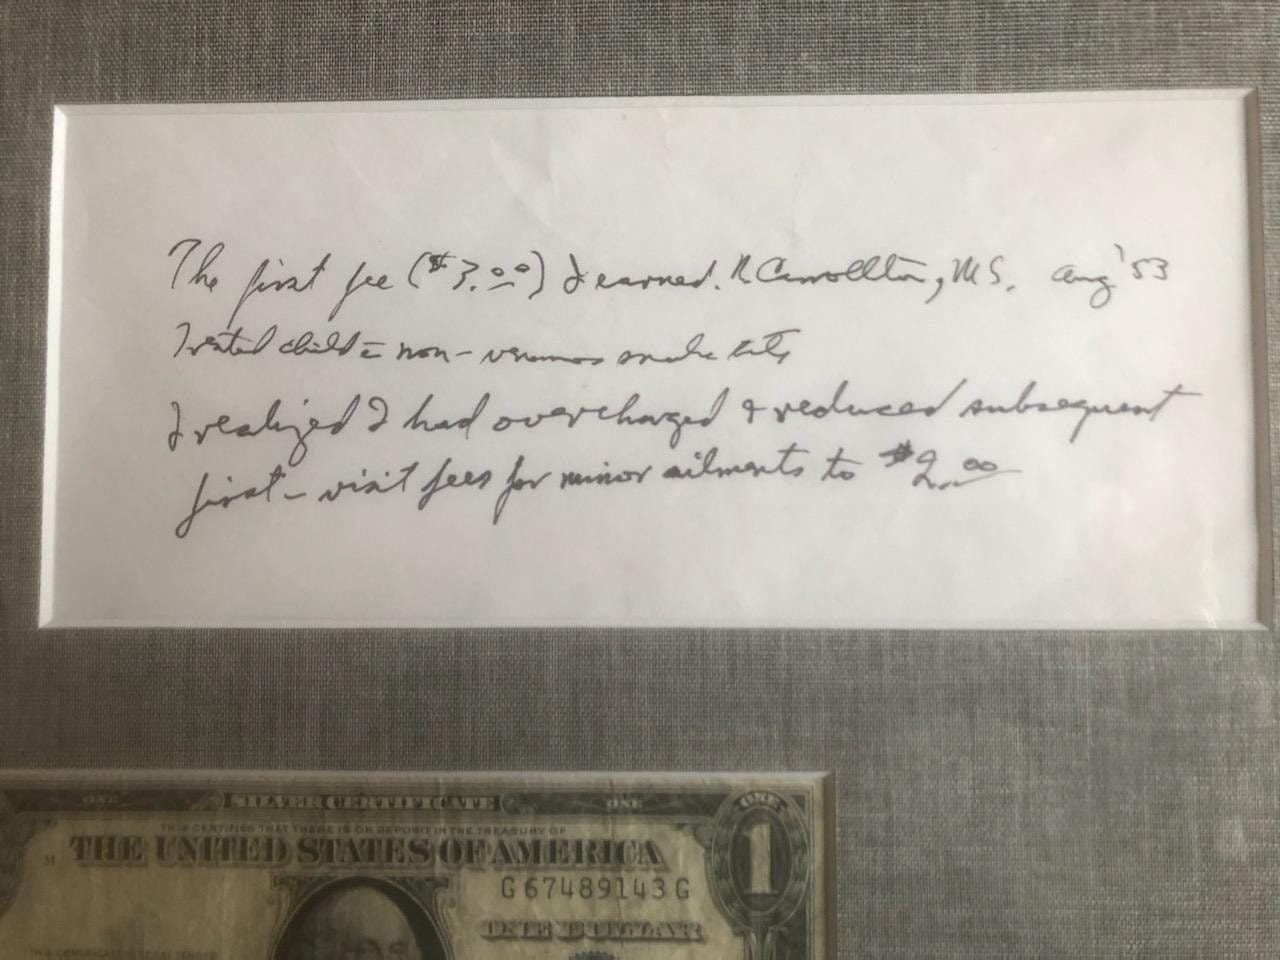 The first fee ($3.00) I earned. N. Carrollton, MS. Aug '53
Treated child c̄ non-venomous snake bite
I realized I had overcharged & reduced subsequent
first-visit fees for minor ailments to $2.00
ONE SILVER CERTIFICATE ONE ONE
THIS CERTIFIES THAT THERE IS ON DEPOSIT IN THE TREASURY OF
M THE UNITED STATES OF AMERICA 1
G 67489143 G
ONE DOLLAR